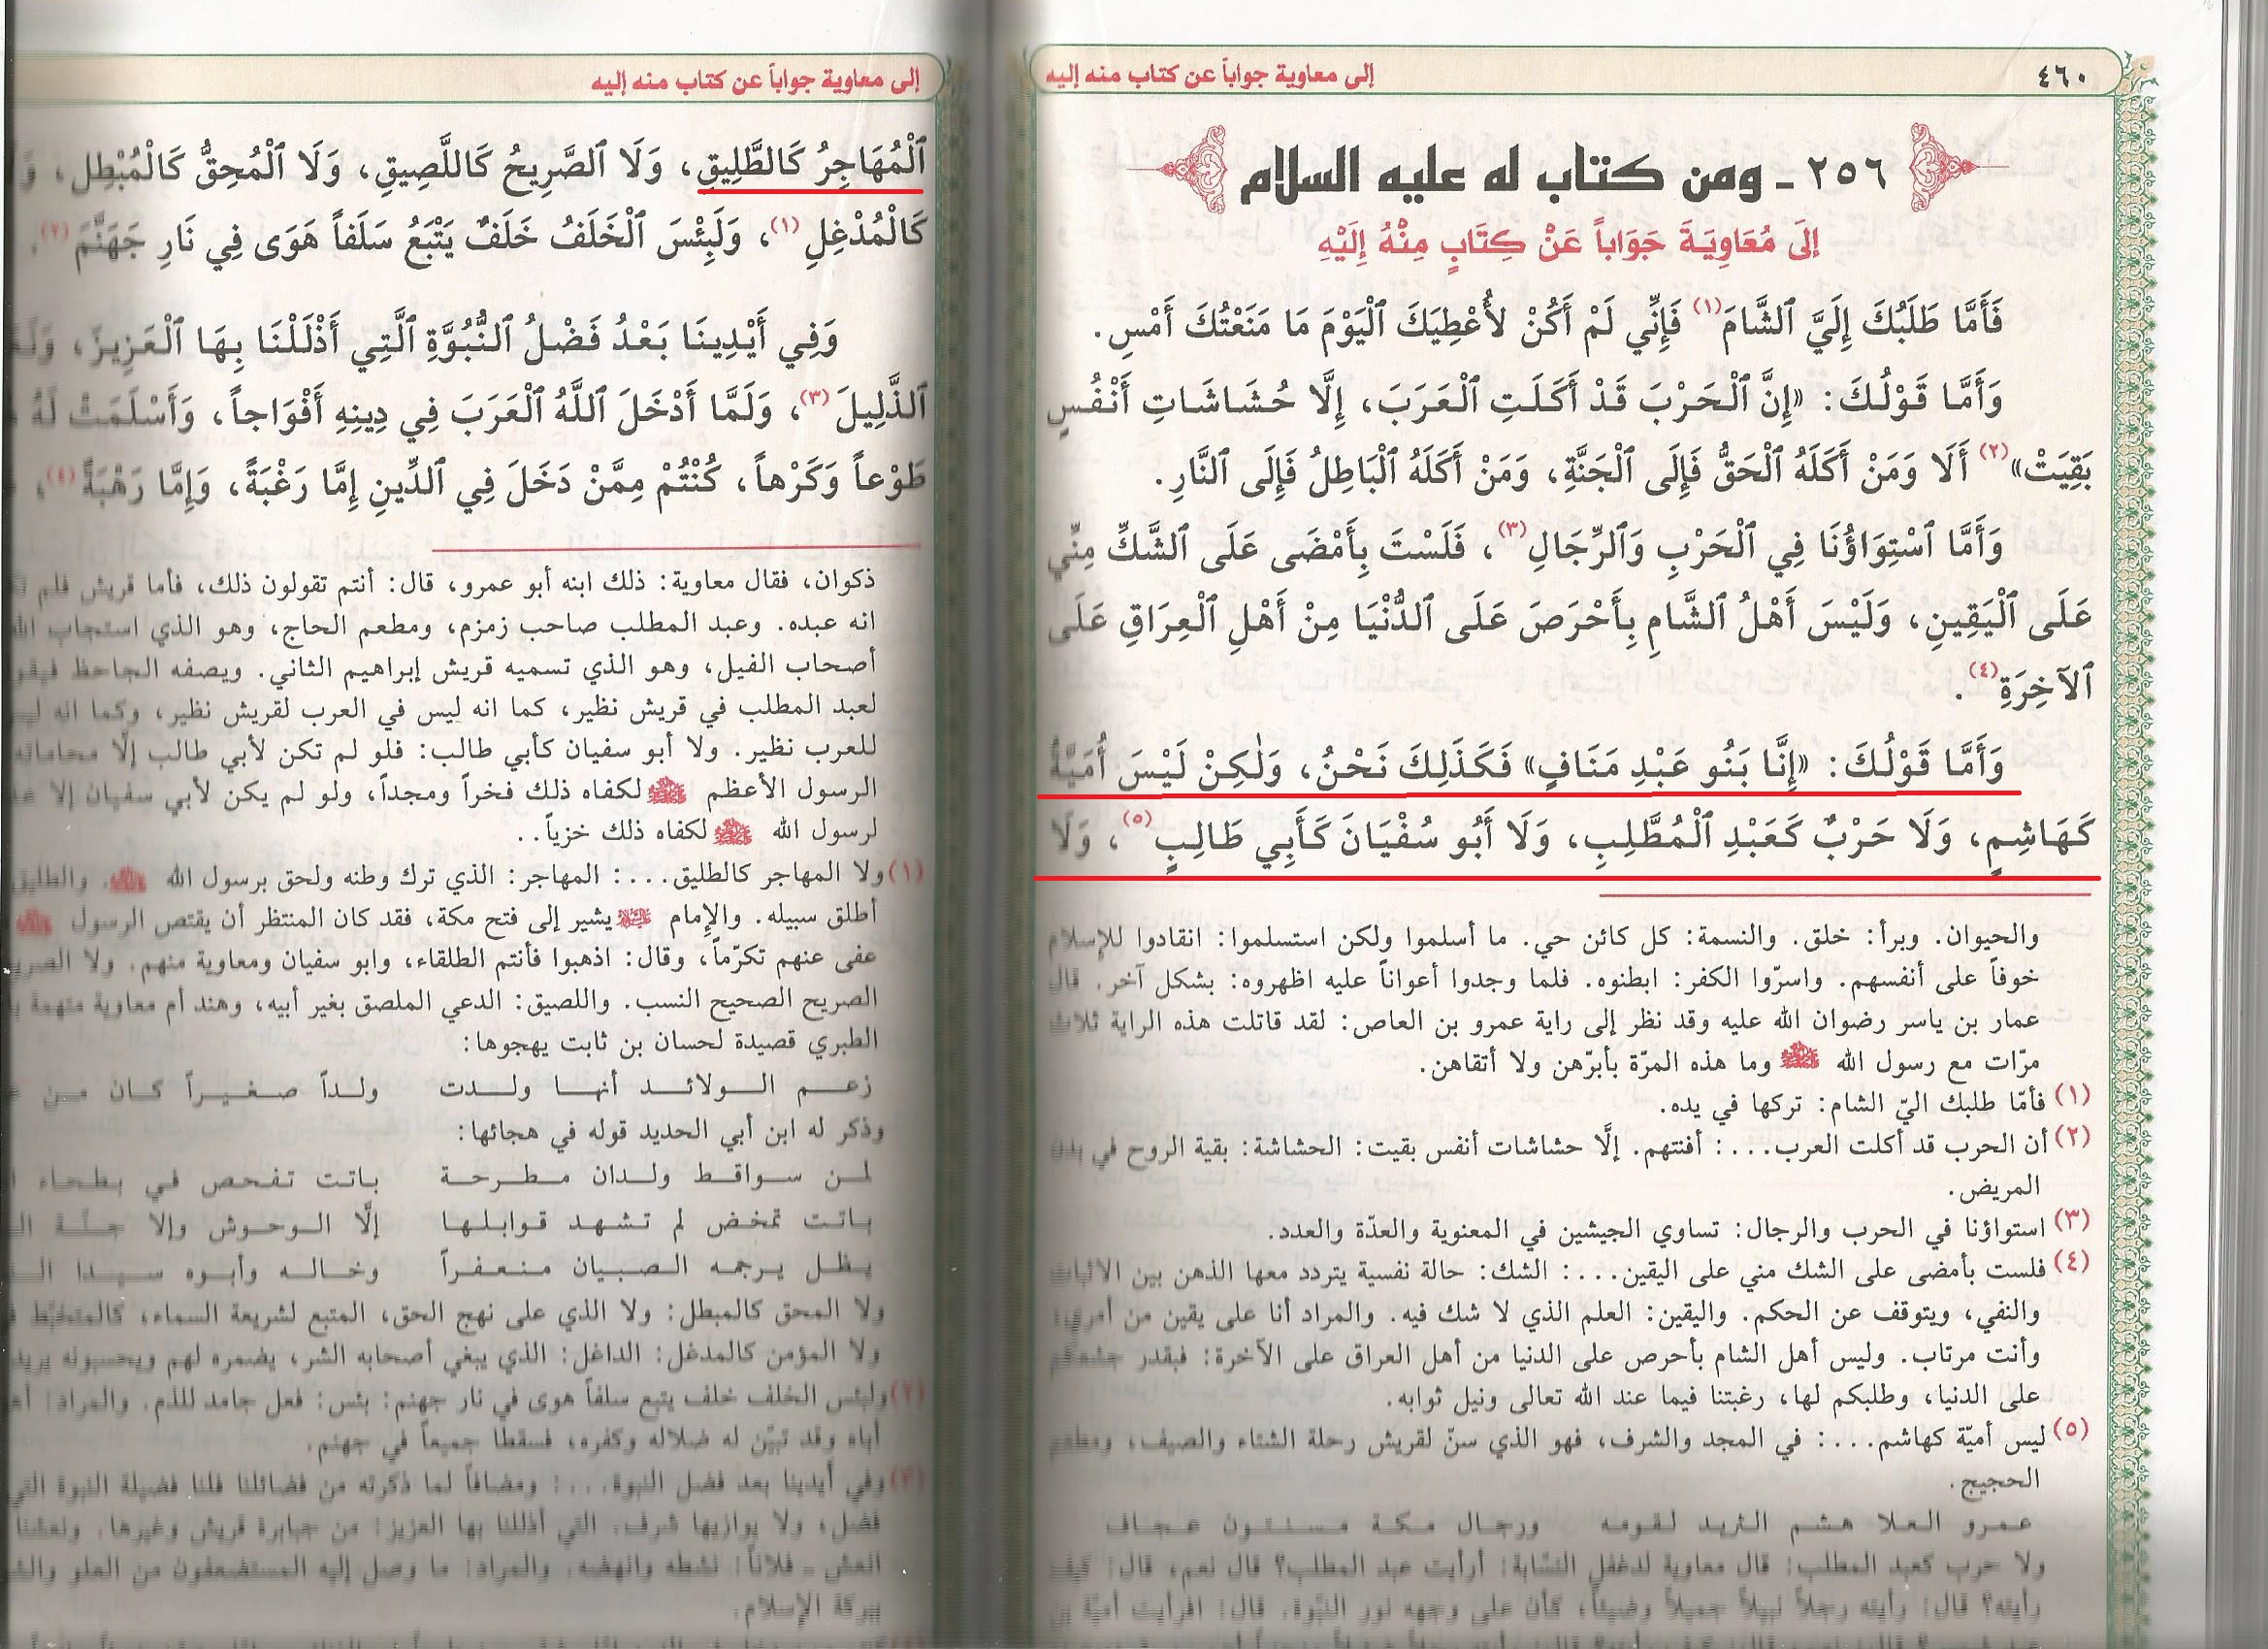 ٤٦٠
إلى معاوية جواباً عن كتاب منه إليه
٢٥٦ - ومن كتاب له عليه السلام
إلَى مُعَاوِيَةَ جَوَاباً عَنْ كِتَابٍ مِنْهُ إِلَيْهِ
فَأَمَّا طَلَبُكَ إِلَيَّ ٱلشَّامَ(١) فَإِنِّي لَمْ أَكُنْ لأُعْطِيَكَ ٱلْيَوْمَ مَا مَنَعْتُكَ أَمْسِ.
وَأَمَّا قَوْلُكَ: «إِنَّ ٱلْحَرْبَ قَدْ أَكَلَتِ ٱلْعَرَبَ، إِلَّا حُشَاشَاتِ أَنْفُسٍ
بَقِيَتْ»(٢) أَلَا وَمَنْ أَكَلَهُ ٱلْحَقُّ فَإِلَى ٱلْجَنَّةِ، وَمَنْ أَكَلَهُ ٱلْبَاطِلُ فَإِلَى ٱلنَّارِ.
وَأَمَّا ٱسْتِوَاؤُنَا فِي ٱلْحَرْبِ وَٱلرِّجَالِ(٣)، فَلَسْتَ بِأَمْضَى عَلَى ٱلشَّكِّ مِنِّي
عَلَى ٱلْيَقِينِ، وَلَيْسَ أَهْلُ ٱلشَّامِ بِأَحْرَصَ عَلَى ٱلدُّنْيَا مِنْ أَهْلِ ٱلْعِرَاقِ عَلَى
ٱلآخِرَةِ(٤).
وَأَمَّا قَوْلُكَ: «إِنَّا بَنُو عَبْدِ مَنَافٍ» فَكَذَلِكَ نَحْنُ، وَلٰكِنْ لَيْسَ أُمَيَّةُ
كَهَاشِمٍ، وَلَا حَرْبٌ كَعَبْدِ ٱلْمُطَّلِبِ، وَلَا أَبُو سُفْيَانَ كَأَبِي طَالِبٍ(٥)، وَلَا
والحيوان. وبرأ: خلق. والنسمة: كل كائن حي. ما أسلموا ولكن استسلموا: انقادوا للإسلام
خوفاً على أنفسهم. واسرّوا الكفر: ابطنوه. فلما وجدوا أعواناً عليه اظهروه: بشكل آخر. قال
عمار بن ياسر رضوان الله عليه وقد نظر إلى راية عمرو بن العاص: لقد قاتلت هذه الراية ثلاث
مرّات مع رسول الله ﷺ وما هذه المرّة بأبرّهن ولا أتقاهن.
(١) فأمّا طلبك اليّ الشام: تركها في يده.
(٢) أن الحرب قد أكلت العرب...: أفنتهم. إلَّا حشاشات أنفس بقيت: الحشاشة: بقية الروح في بدن
المريض.
(٣) استواؤنا في الحرب والرجال: تساوي الجيشين في المعنوية والعدّة والعدد.
(٤) فلست بأمضى على الشك مني على اليقين...: الشك: حالة نفسية يتردد معها الذهن بين الاثبات
والنفي، ويتوقف عن الحكم. واليقين: العلم الذي لا شك فيه. والمراد أنا على يقين من أمري،
وأنت مرتاب. وليس أهل الشام بأحرص على الدنيا من أهل العراق على الآخرة: فبقدر جشعكم
على الدنيا، وطلبكم لها، رغبتنا فيما عند الله تعالى ونيل ثوابه.
(٥) ليس أميّة كهاشم...: في المجد والشرف، فهو الذي سنّ لقريش رحلة الشتاء والصيف، ومطعم
الحجيج.
عمرو العلا هشم الثريد لقومه ورجال مكة مسنتون عجاف
ولا حرب كعبد المطلب: قال معاوية لدغفل النسّابة: أرأيت عبد المطلب؟ قال نعم، قال: كيف
رأيته؟ قال: رأيته رجلاً نبيلاً جميلاً وضيئاً، كأن على وجهه نور النبوّة. قال: افرأيت أميّة بن
إلى معاوية جواباً عن كتاب منه إليه
ٱلْمُهَاجِرُ كَالطَّلِيقِ، وَلَا ٱلصَّرِيحُ كَاللَّصِيقِ، وَلَا ٱلْمُحِقُّ كَالْمُبْطِلِ،
كَالْمُدْغِلِ(١)، وَلَبِئْسَ ٱلْخَلَفُ خَلَفٌ يَتْبَعُ سَلَفاً هَوَى فِي نَارِ جَهَنَّمَ(٢).
وَفِي أَيْدِينَا بَعْدُ فَضْلُ ٱلنُّبُوَّةِ ٱلَّتِي أَذْلَلْنَا بِهَا ٱلْعَزِيزَ،
ٱلذَّلِيلَ(٣)، وَلَمَّا أَدْخَلَ ٱللَّهُ ٱلْعَرَبَ فِي دِينِهِ أَفْوَاجاً، وَأَسْلَمَتْ لَهُ
طَوْعاً وَكَرْهاً، كُنْتُمْ مِمَّنْ دَخَلَ فِي ٱلدِّينِ إِمَّا رَغْبَةً، وَإِمَّا رَهْبَةً(٤)،
ذكوان، فقال معاوية: ذلك ابنه أبو عمرو، قال: أنتم تقولون ذلك، فأما قريش فلم
انه عبده. وعبد المطلب صاحب زمزم، ومطعم الحاج، وهو الذي استجاب
أصحاب الفيل، وهو الذي تسميه قريش إبراهيم الثاني. ويصفه الجاحظ
لعبد المطلب في قريش نظير، كما انه ليس في العرب لقريش نظير، وكما انه
للعرب نظير. ولا أبو سفيان كأبي طالب: فلو لم تكن لأبي طالب إلَّا محاماته
الرسول الأعظم ﷺ لكفاه ذلك فخراً ومجداً، ولو لم يكن لأبي سفيان إلا
لرسول الله ﷺ لكفاه ذلك خزياً..
(١) ولا المهاجر كالطليق...: المهاجر: الذي ترك وطنه ولحق برسول الله ﷺ. والطليق
أطلق سبيله. والإمام عليه السلام يشير إلى فتح مكة، فقد كان المنتظر أن يقتص الرسول ﷺ
عفى عنهم تكرّماً، وقال: اذهبوا فأنتم الطلقاء، وابو سفيان ومعاوية منهم. ولا
الصريح الصحيح النسب. واللصيق: الدعي الملصق بغير أبيه، وهند أم معاوية متهمة
الطبري قصيدة لحسان بن ثابت يهجوها:
زعم الولائد أنها ولدت ولداً صغيراً كان من
وذكر له ابن أبي الحديد قوله في هجائها:
لمن سواقط ولدان مطرحة باتت تفحص في بطحاء
باتت تمخض لم تشهد قوابلها إلَّا الوحوش وإلا جنّة
يظل يرجمه الصبيان منعفراً وخاله وأبوه سيدا
ولا المحق كالمبطل: ولا الذي على نهج الحق، المتبع لشريعة السماء، كالمتخبّط
ولا المؤمن كالمدغل: الداغل: الذي يبغي أصحابه الشر، يضمره لهم ويحسبونه
(٢) ولبئس الخلف خلف يتبع سلفاً هوى في نار جهنم: بئس: فعل جامد للذم. والمراد:
أباه وقد تبيّن له ضلاله وكفره، فسقطا جميعاً في جهنم.
(٣) وفي أيدينا بعد فضل النبوة...: ومضافاً لما ذكرته من فضائلنا فلنا فضيلة النبوة التي
فضل، ولا يوازيها شرف. التي أذللنا بها العزيز: من جبابرة قريش وغيرها. ونعشنا
انعش - فلاناً: نشطه وانهضه. والمراد: ما وصل إليه المستضعفون من العلو
ببركة الإسلام.